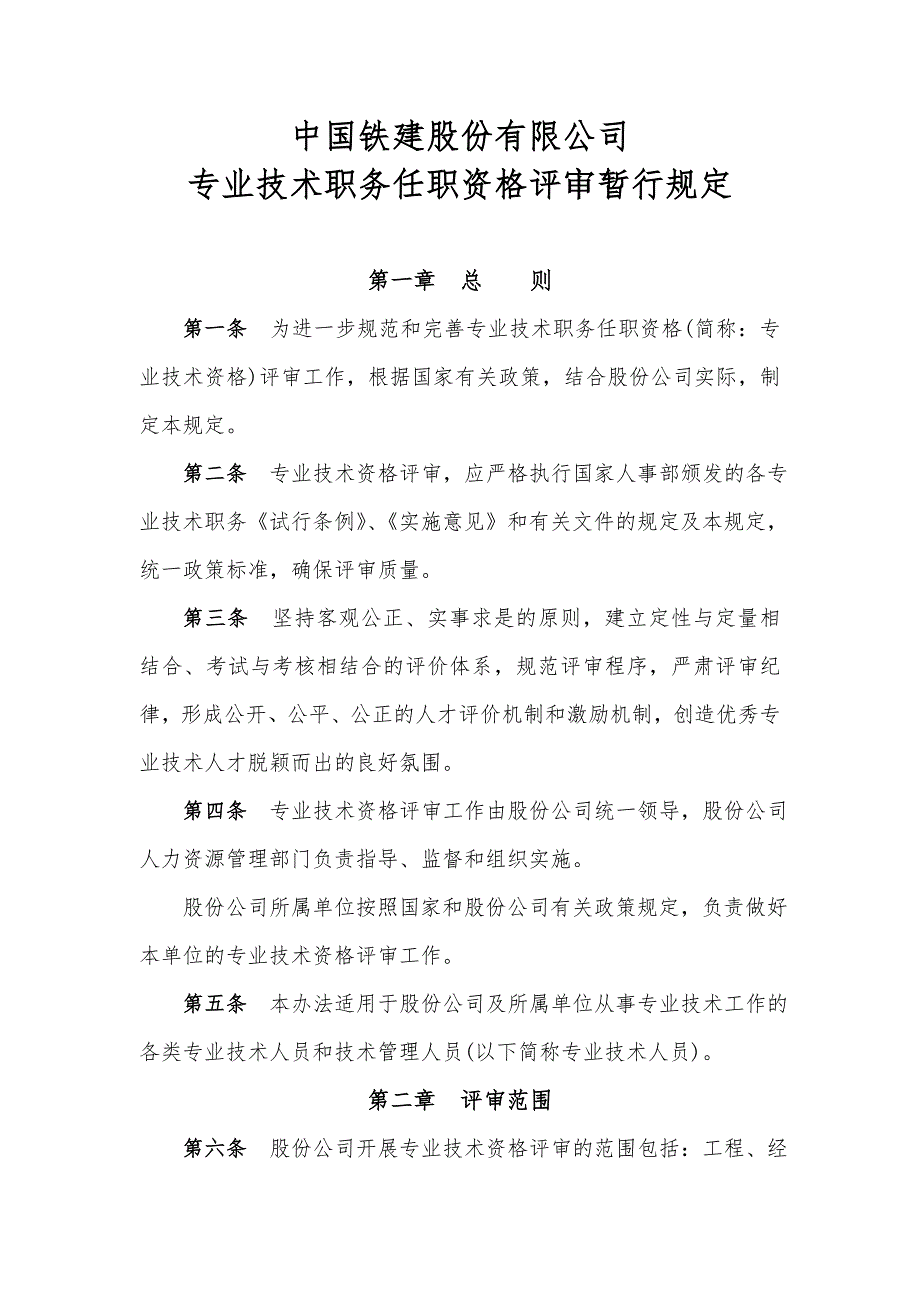 中国铁建股份有限公司
专业技术职务任职资格评审暂行规定
第一章　总　　则
第一条　为进一步规范和完善专业技术职务任职资格(简称：专
业技术资格)评审工作，根据国家有关政策，结合股份公司实际，制
定本规定。
第二条　专业技术资格评审，应严格执行国家人事部颁发的各专
业技术职务《试行条例》、《实施意见》和有关文件的规定及本规定，
统一政策标准，确保评审质量。
第三条　坚持客观公正、实事求是的原则，建立定性与定量相
结合、考试与考核相结合的评价体系，规范评审程序，严肃评审纪
律，形成公开、公平、公正的人才评价机制和激励机制，创造优秀专
业技术人才脱颖而出的良好氛围。
第四条　专业技术资格评审工作由股份公司统一领导，股份公司
人力资源管理部门负责指导、监督和组织实施。
股份公司所属单位按照国家和股份公司有关政策规定，负责做好
本单位的专业技术资格评审工作。
第五条　本办法适用于股份公司及所属单位从事专业技术工作的
各类专业技术人员和技术管理人员(以下简称专业技术人员)。
第二章　评审范围
第六条　股份公司开展专业技术资格评审的范围包括：工程、经